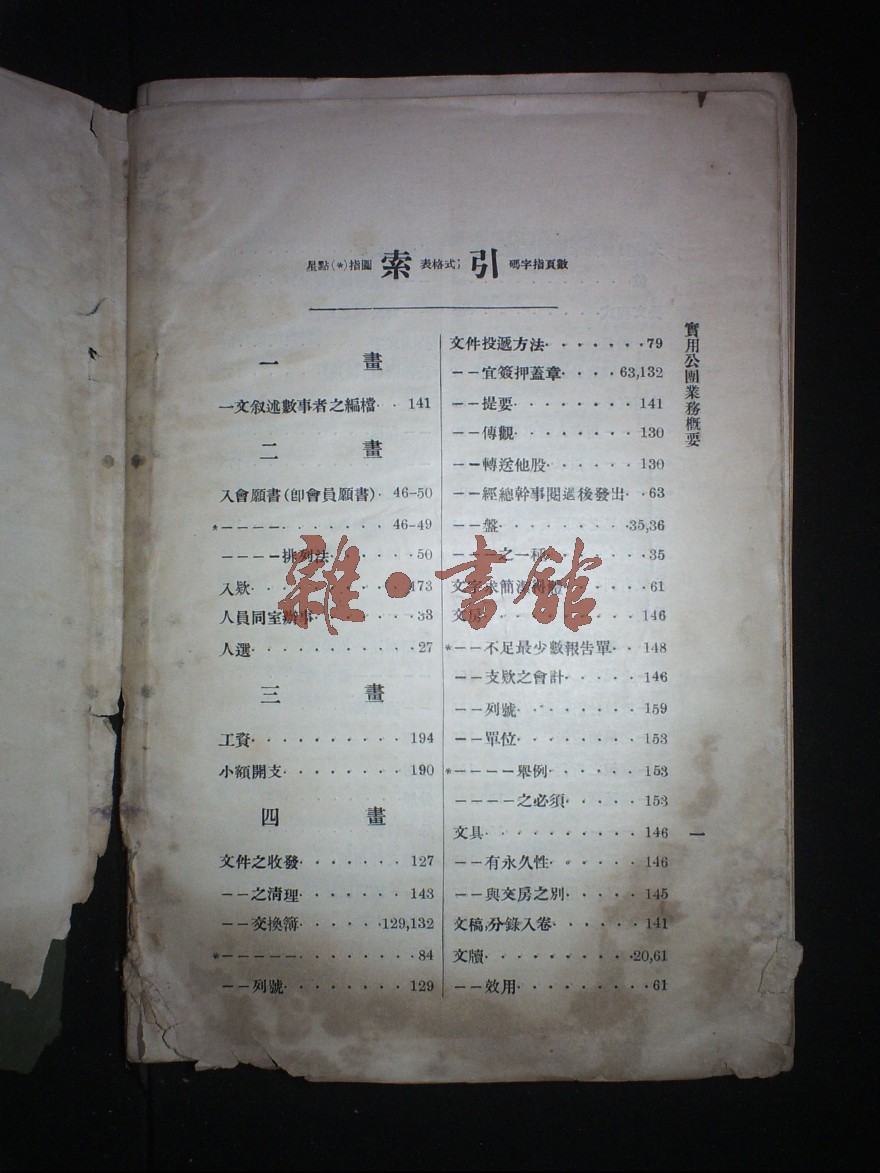 星點(*)指圖 索 表格式; 引 碼字指頁數
一 畫
一文叙述數事者之編檔 141
二 畫
入會願書(即會員願書) 46-50
*———— 46-49
————排列法 50
入欵 173
人員同室辦事 33
人選 27
三 畫
工資 194
小額開支 190
四 畫
文件之收發 127
——之清理 143
——交換簿 129,132
*————— 84
——列號 129
文件投遞方法 79
——宜簽押蓋章 63,132
——提要 141
——傳觀 130
——轉送他股 130
——經總幹事閱過後發出 63
——盤 35,36
————之一種 35
文字求簡潔 61
文房 146
*——不足最少數報告單 148
——支欵之會計 146
——列號 159
——單位 153
*————舉例 153
————之必須 153
文具 146
——有永久性 146
——與文房之別 145
文稿,分錄入卷 141
文牘 20,61
——效用 61
實用公團業務概要
一
雜·書館